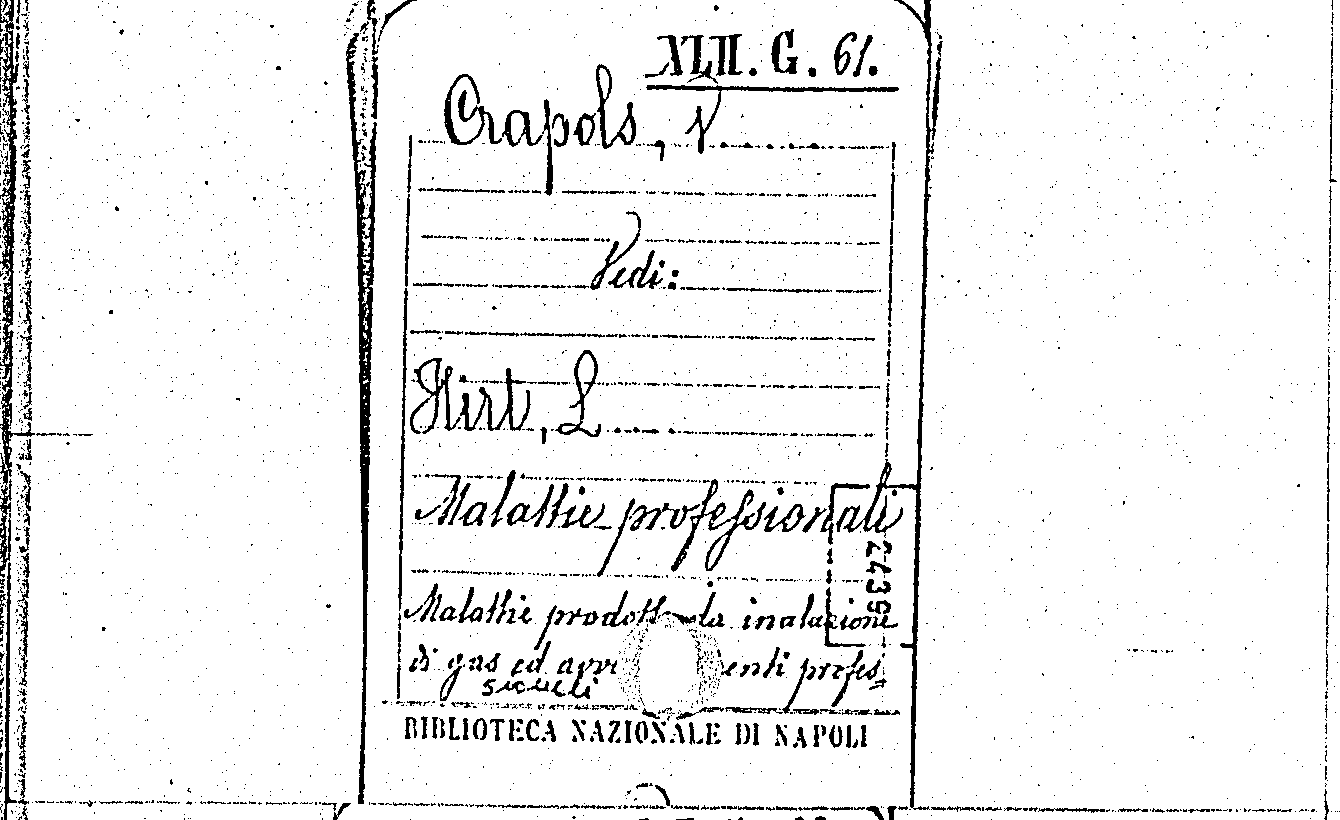 XLII. G. 61.
Crapols, V......
Vedi:
Hirt, L.....
Malattie professionali
2439
Malattie prodotte da inalazione
di gas ed avve enti profes=
BIBLIOTECA NAZIONALE DI NAPOLI